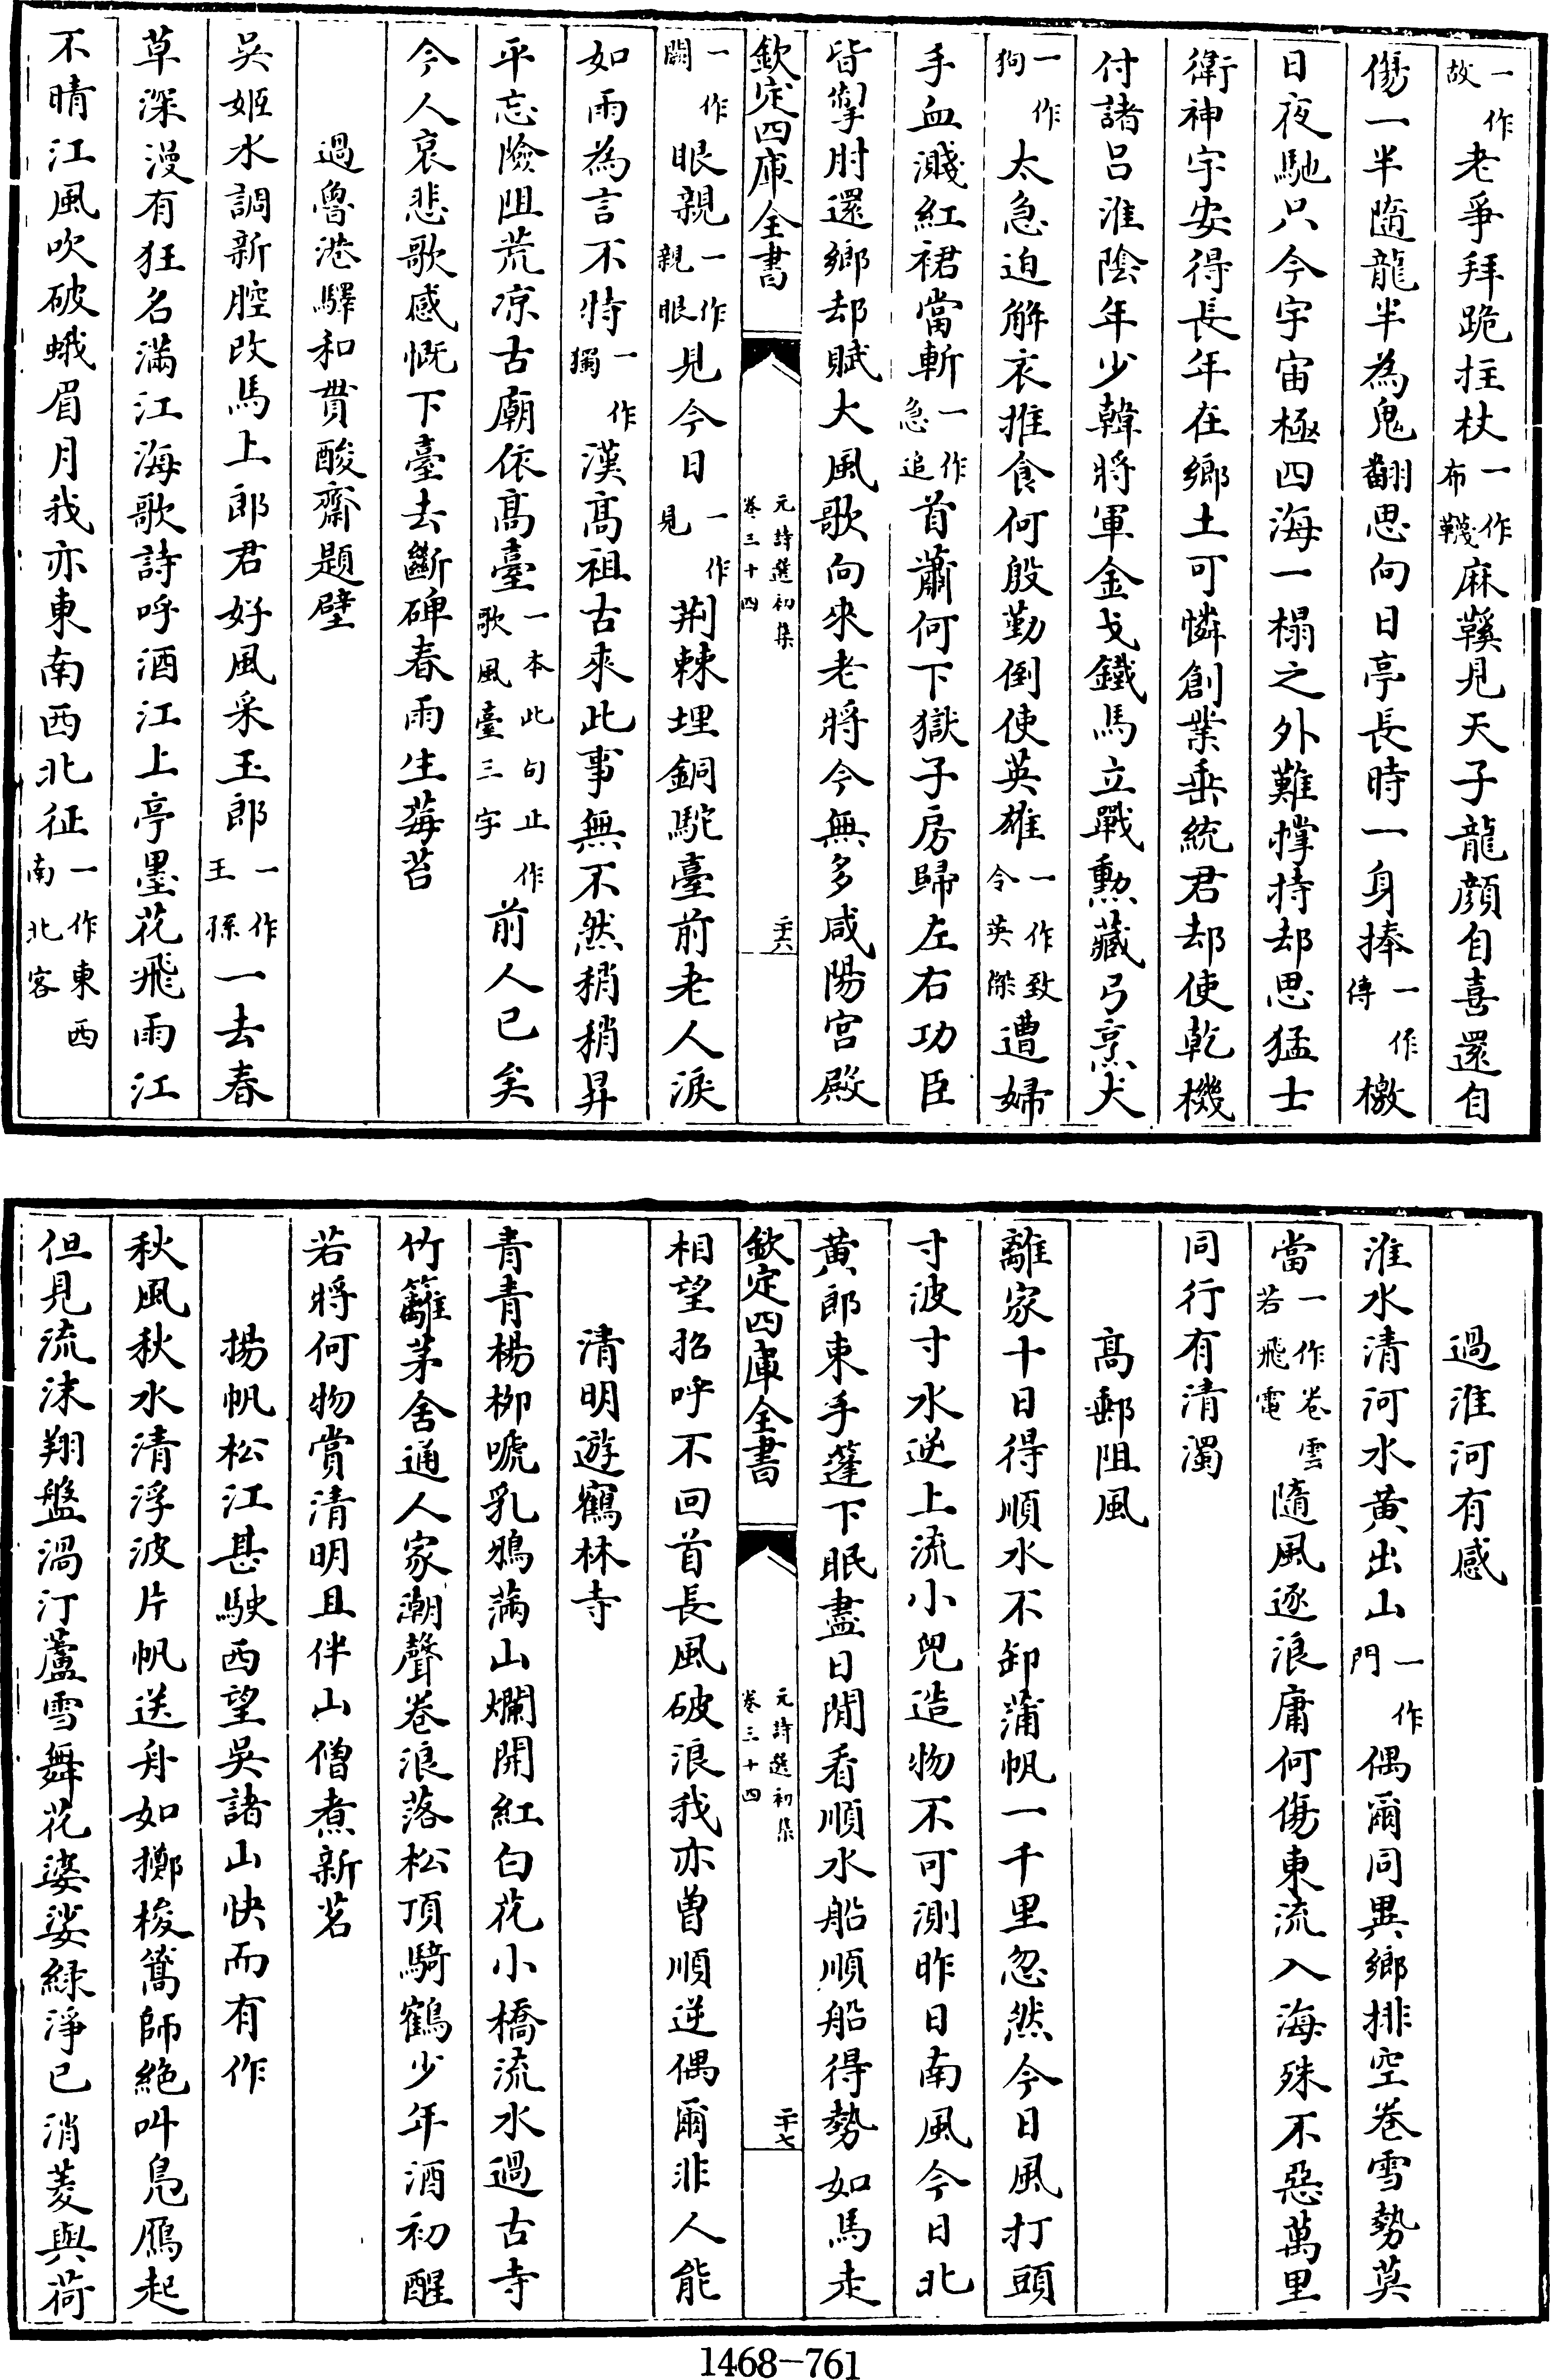 一作故老爭拜跪拄杖一作布韈麻鞵見天子龍顔自喜還自
傷一半隨龍半為鬼翻思向日亭長時一身捧一作傳檄
日夜馳只今宇宙極四海一榻之外難撑持却思猛士
衛神宇安得長年在鄉土可憐創業垂統君却使乾機
付諸吕淮陰年少韓將軍金戈鐵馬立戰勲藏弓烹犬
一作狗太急迫解衣推食何殷勤倒使英雄一作致令英傑遭婦
手血濺紅裙當斬一作急追首蕭何下獄子房歸左右功臣
皆掣肘還鄉却賦大風歌向來老將今無多咸陽宫殿
欽定四庫全書
元詩選初集
卷三十四
二十六
一作闗眼親一作親眼見今日一作見荆棘埋銅駝臺前老人淚
如雨為言不特一作獨漢髙祖古來此事無不然稍稍昇
平忘險阻荒凉古廟依髙臺一本此句止作歌風臺三字前人已矣
今人哀悲歌感慨下臺去斷碑春雨生莓苔
過魯港驛和貫酸齋題壁
吳姬水調新腔改馬上郎君好風采玉郎一作王孫一去春
草深漫有狂名滿江海歌詩呼酒江上亭墨花飛雨江
不晴江風吹破蛾眉月我亦東南西北征一作東西南北客
過淮河有感
淮水清河水黄出山一作門偶爾同異鄉排空卷雪勢莫
當一作卷雲若飛電隨風逐浪庸何傷東流入海殊不惡萬里
同行有清濁
髙郵阻風
離家十日得順水不卸蒲帆一千里忽然今日風打頭
寸波寸水逆上流小兒造物不可測昨日南風今日北
黄郎束手篷下眠盡日閒看順水船順船得勢如馬走
欽定四庫全書
元詩選初集
卷三十四
二十七
相望招呼不回首長風破浪我亦曽順逆偶爾非人能
清明遊鶴林寺
青青楊栁嗁乳鴉滿山爛開紅白花小橋流水過古寺
竹籬茅舍通人家潮聲卷浪落松頂騎鶴少年酒初醒
若將何物賞清明且伴山僧煮新茗
揚帆松江甚駛西望吳諸山快而有作
秋風秋水清浮波片帆送舟如擲梭篙師絶叫鳬鴈起
但見流沫翔盤渦汀蘆雪舞花婆娑緑淨已消菱與荷
1468-761